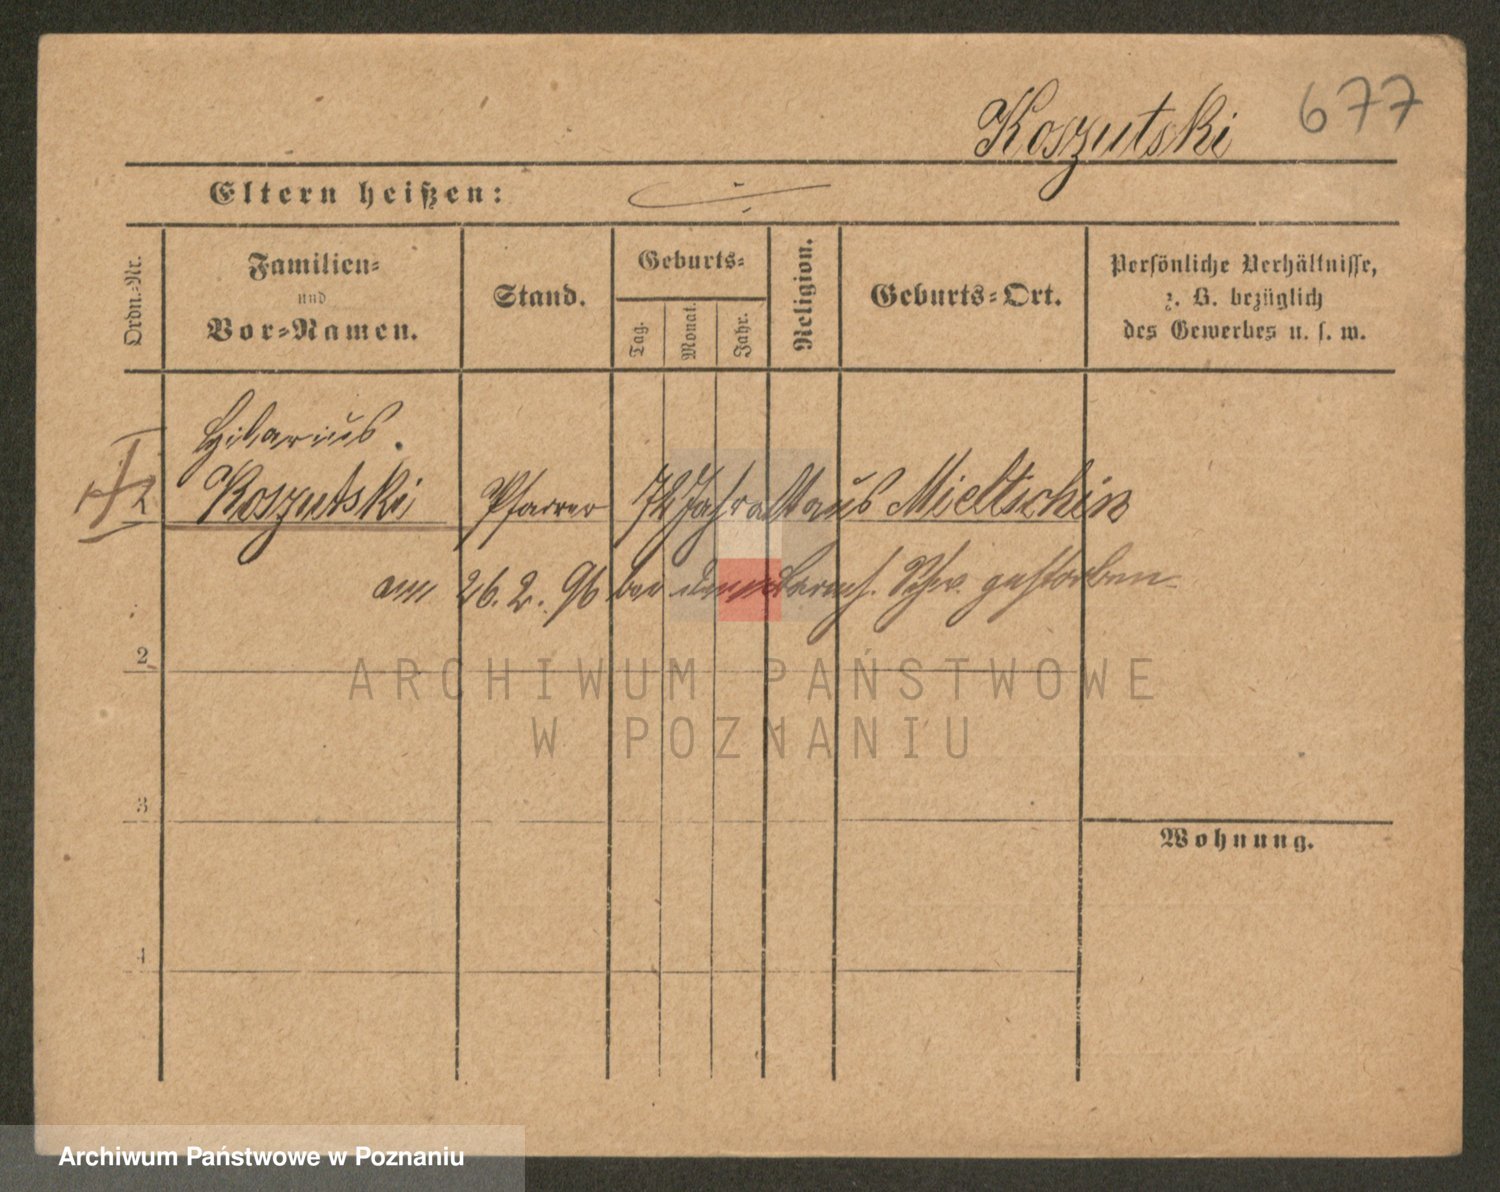 Koszutski 677
Eltern heißen:
Ordn.-Nr.
Familien-
und
Vor-Namen.
Stand.
Geburts-
Tag.
Monat.
Jahr.
Religion.
Geburts-Ort.
Persönliche Verhältnisse,
z. B. bezüglich
des Gewerbes u. s. w.
Hilarius
Koszutski Pfarrer 72 Jahr alt aus Mieltschin
am 26. 2. 96 bei den barmh. Schw. gestorben
2
ARCHIWUM PAŃSTWOWE
W POZNANIU
3
Wohnung.
4
Archiwum Państwowe w Poznaniu